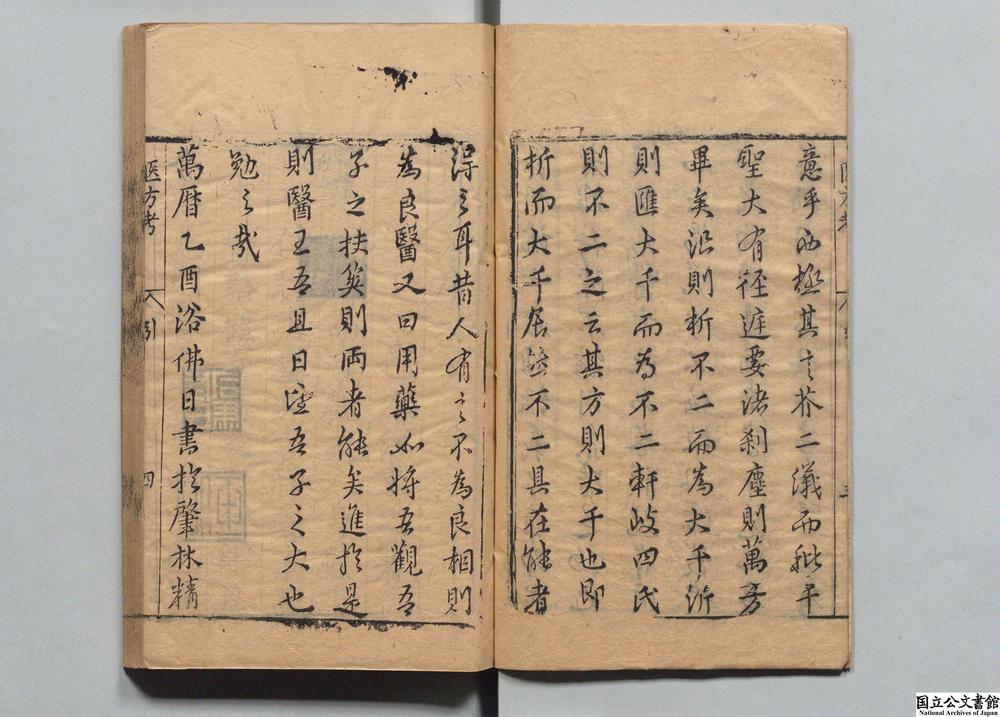 意乎內極其之芥二儀而秕千
聖大有徑逕要渚剎塵則萬方
畢矣沿則析不二而為大千泝
則匯大千而為不二軒岐四氏
則不二之云其方則大千也即
析而大千居然不二具在能者
得之耳昔人有言不為良相則
為良醫又曰用藥如將吾觀吾
子之挾筴則両者能矣進於是
則醫王吾且日望吾子之大也
勉之哉
萬曆乙酉浴佛日書於肇林精
医方考
引
四
医方考
国立公文書館
National Archives of Japan